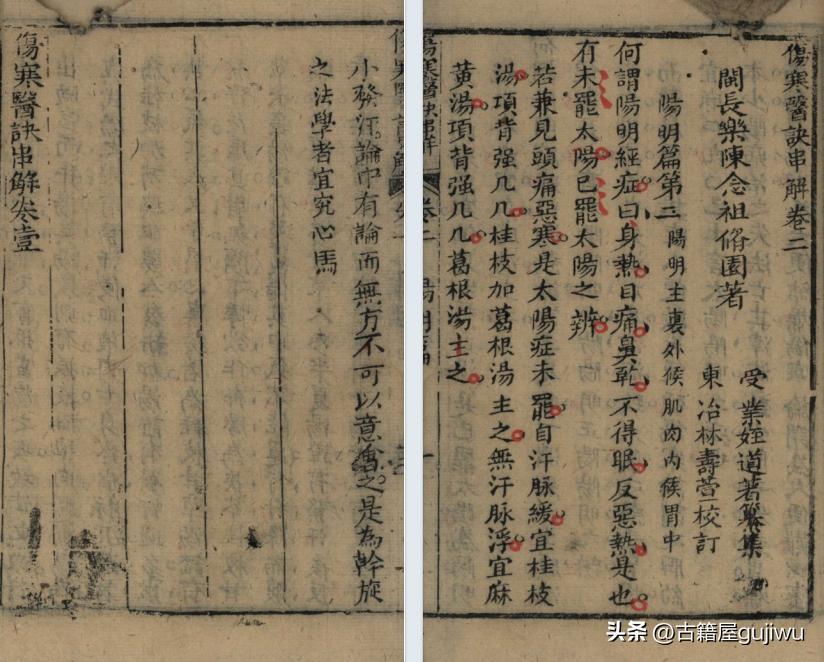 傷寒醫訣串解卷二
閩長樂陳念祖脩園著
受業姪道著纂集
東冶林壽萱校訂
陽明篇第三
陽明主裏外候肌肉內候胃中
何謂陽明經症曰身熱目痛鼻乾不得眠反惡熱是也
有未罷太陽已罷太陽之辨
若兼見頭痛惡寒是太陽症未罷自汗脉緩宜桂枝
湯項背强几几桂枝加葛根湯主之無汗脉浮宜麻
黃湯項背强几几葛根湯主之
傷寒醫訣串解
卷二
陽明篇
一
小發汗論中有論而無方不可以意會之是為斡旋
之法學者宜究心焉
傷寒醫訣串解卷壹
头条 @古籍屋gujiwu